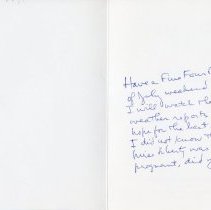 Have a Fine Four
of July weekend
I will watch the
weather reports
hope for the best
I did not know
Miss Liberty was
pregnant, did